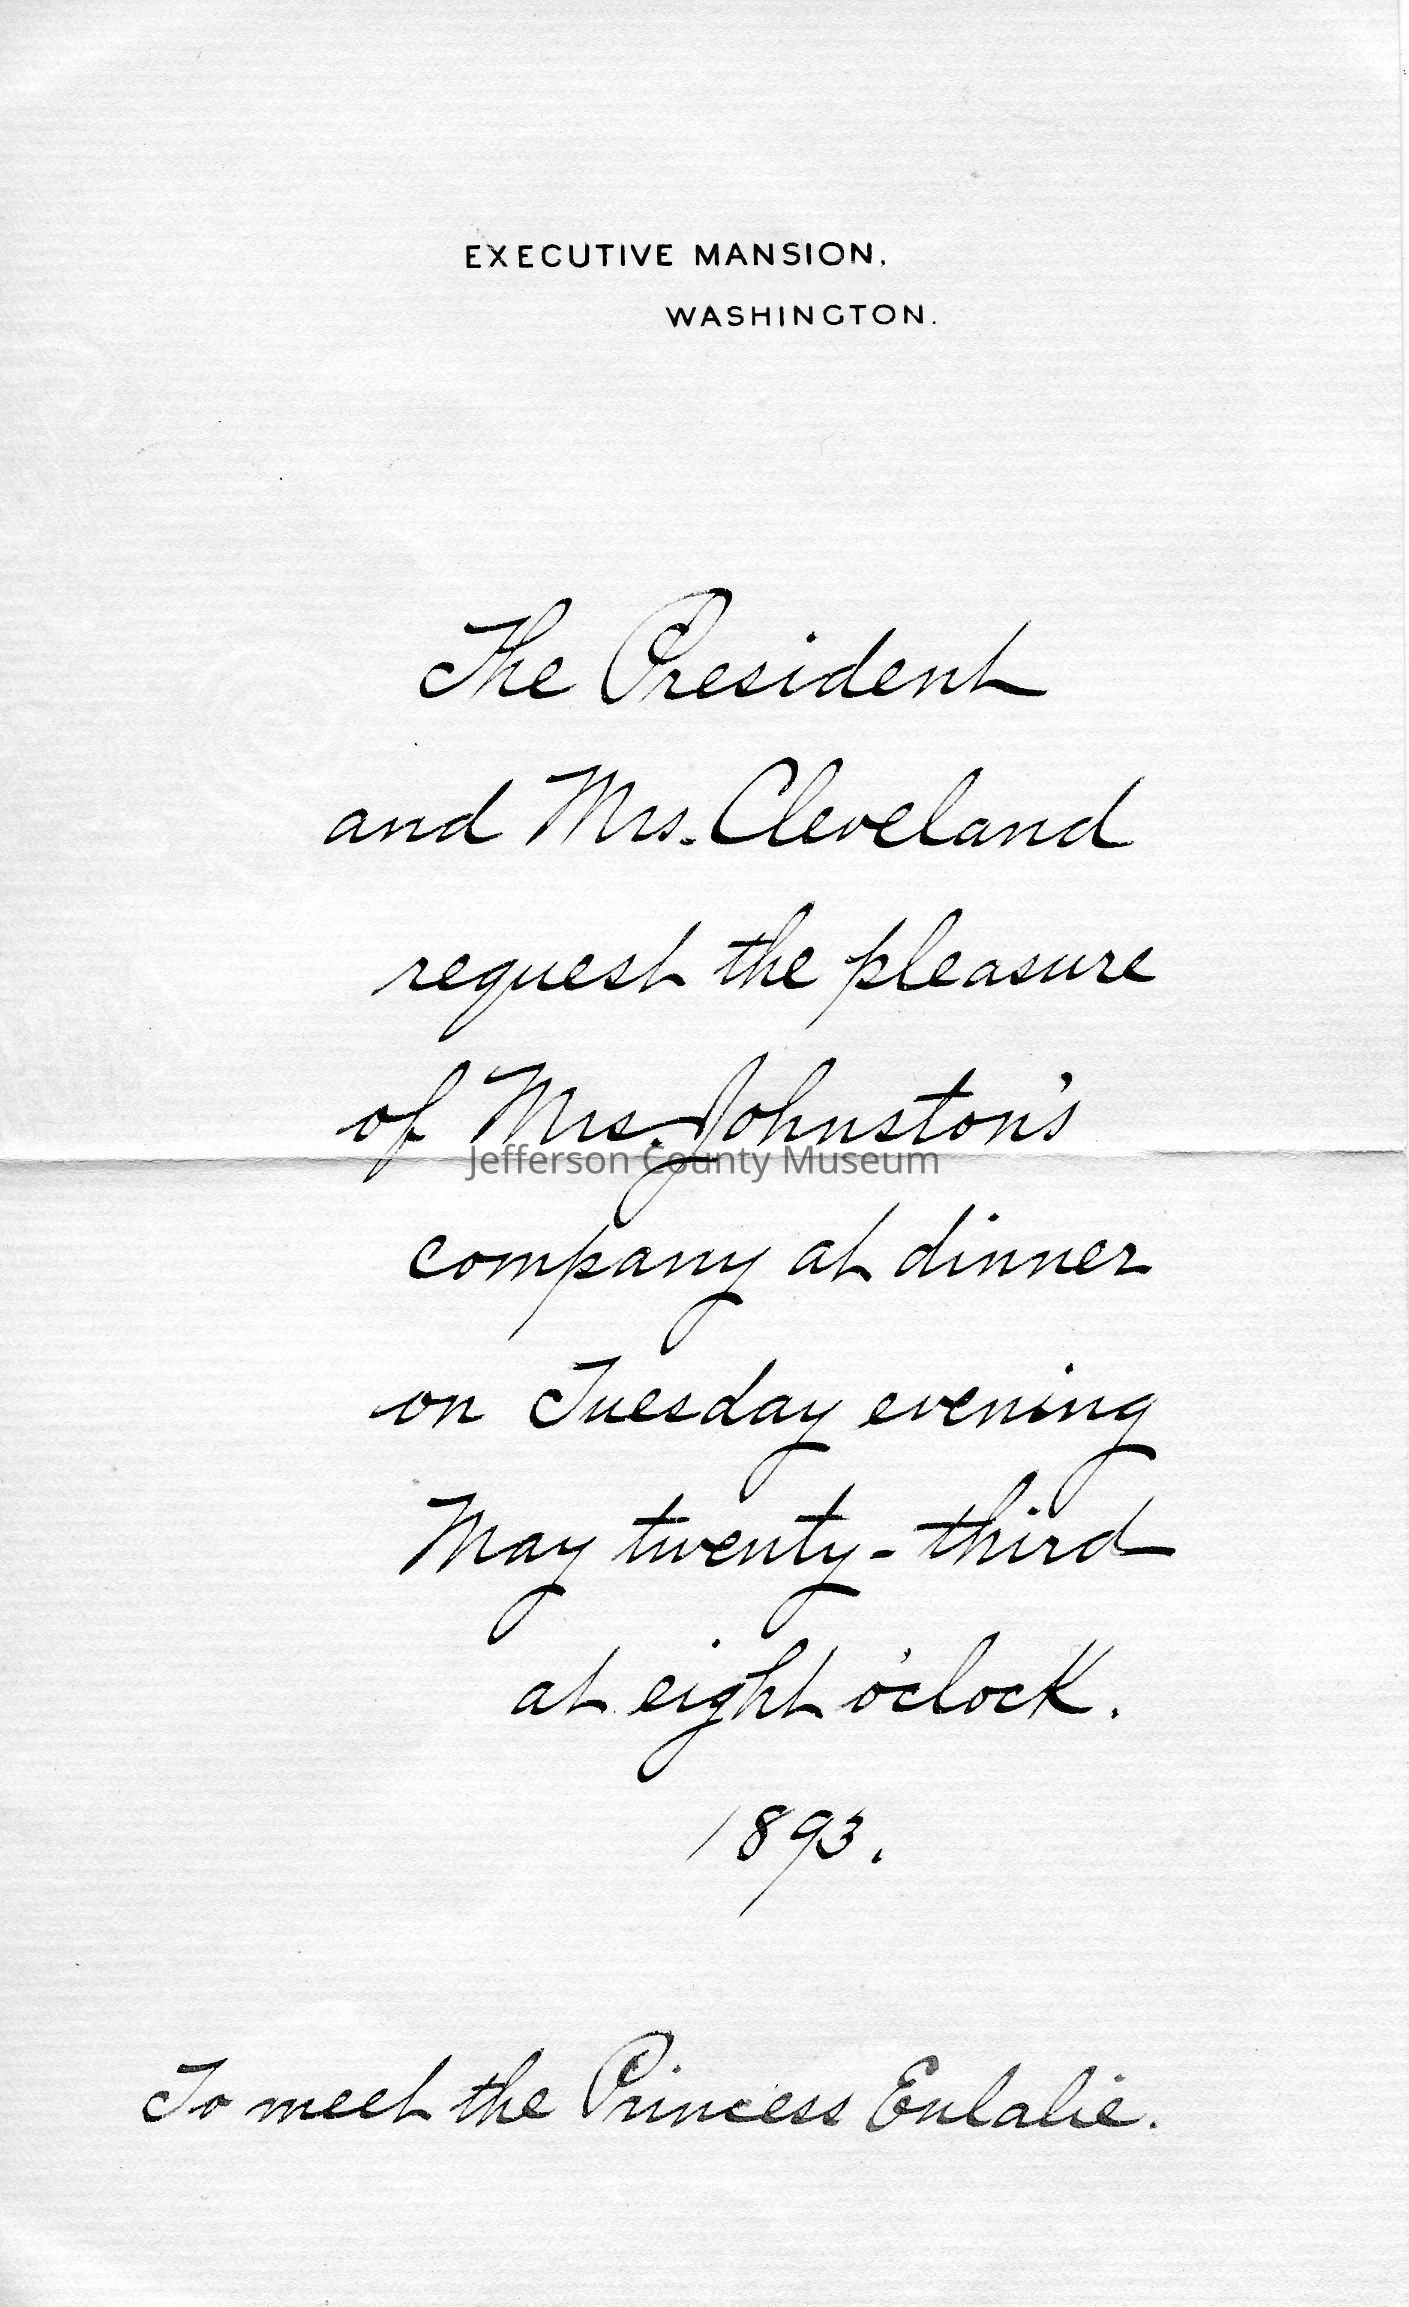 EXECUTIVE MANSION,
WASHINGTON.
The President
and Mrs. Cleveland
request the pleasure
of Mrs. Johnston's
Jefferson County Museum
company at dinner
on Tuesday evening
May twenty-third
at eight o'clock.
1893.
To meet the Princess Eulalie.